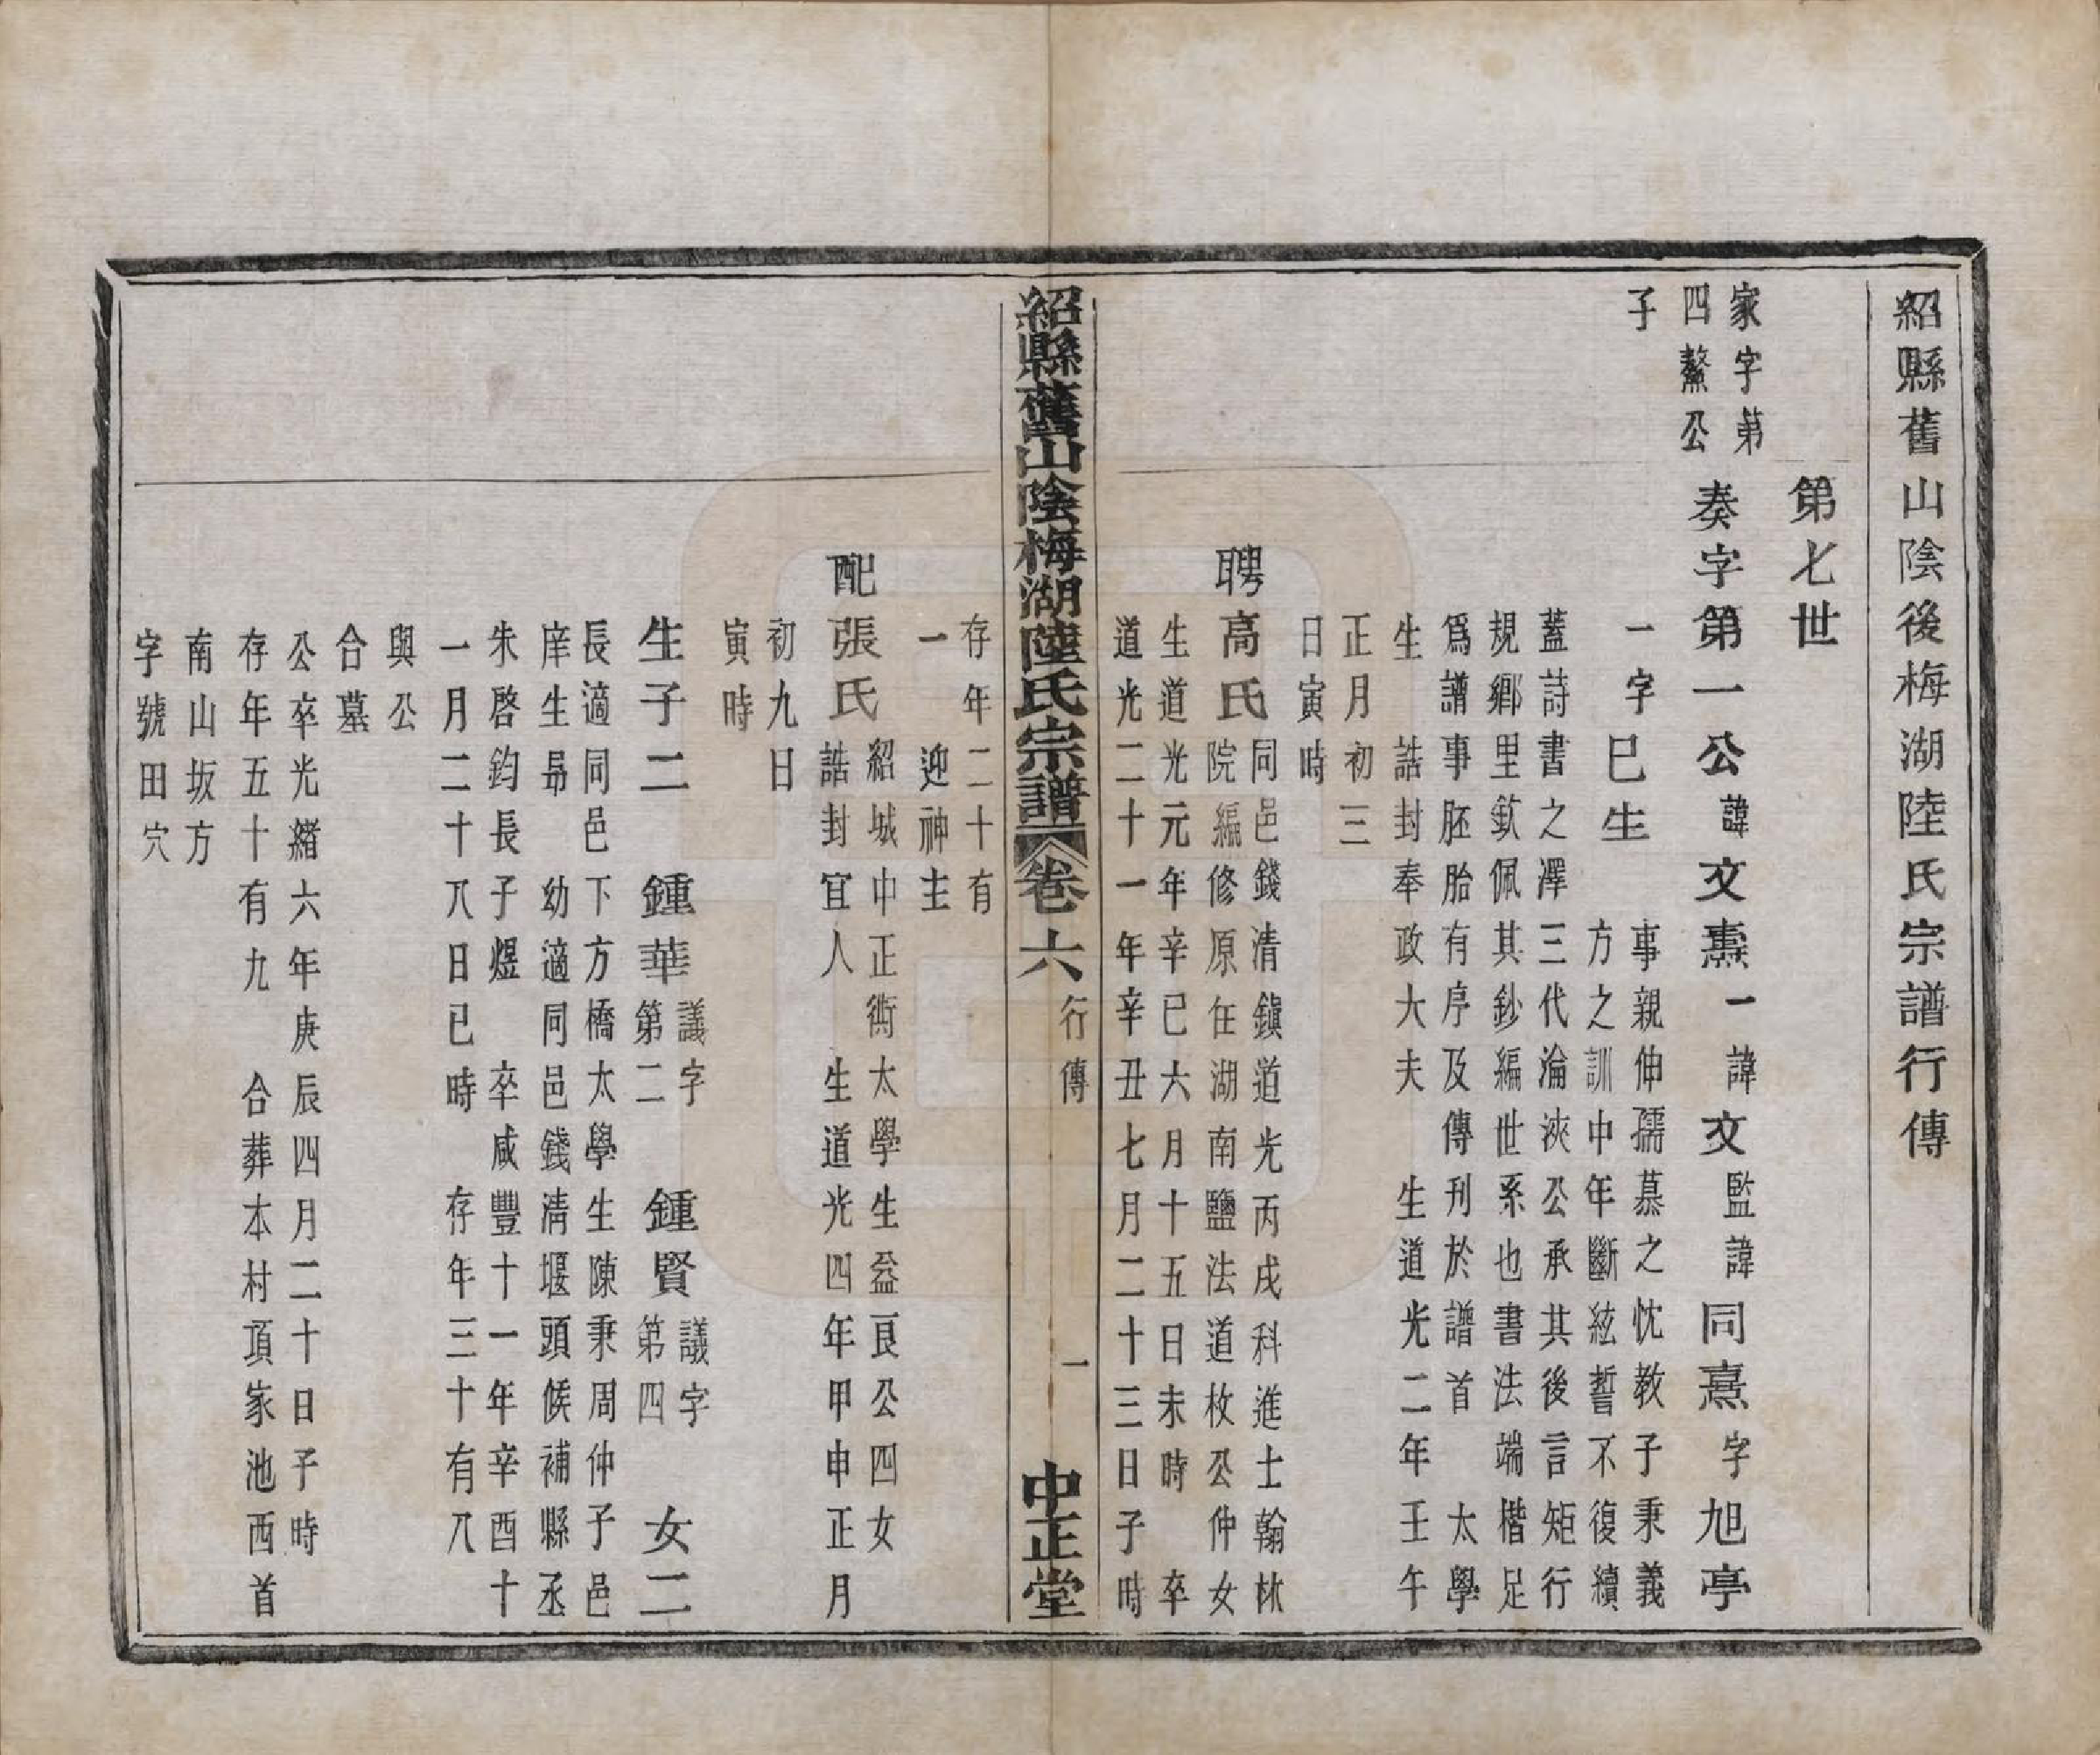 紹縣舊山陰後梅湖陸氏宗譜行傳
第七世
家字第
四鰲公
子
奏字第一公諱文燾一諱文監諱同熹字旭亭
一字巳生
事親伸孺慕之忱教子秉義
方之訓中年斷絃誓不復續
蓋詩書之澤三代淪浹公承其後言矩行
規鄉里欽佩其鈔編世系也書法端楷足
爲譜事胚胎有序及傳刊於譜首
太學
生
誥封奉政大夫
生道光二年壬午
正月初三
日寅時
聘高氏
同邑錢清鎭道光丙戌科進士翰林
院編修原任湖南鹽法道枚公仲女
生道光元年辛巳六月十五日未時
卒
道光二十一年辛丑七月二十三日子時
紹縣舊山陰梅湖陸氏宗譜
卷六
行傳
一
中正堂
存年二十有
一
迎神主
配張氏
紹城中正衖太學生益良公四女
誥封宜人
生道光四年甲申正月
初九日
寅時
生子二
鍾華
議字
第二
鍾賢
議字
第四
女二
長適同邑下方橋太學生陳秉周仲子邑
庠生昴
幼適同邑錢清堰頭候補縣丞
朱啓鈞長子煜
卒咸豐十一年辛酉十
一月二十八日巳時
存年三十有八
與公
合墓
公卒光緒六年庚辰四月二十日子時
存年五十有九
合葬本村項家池西首
南山坂方
字號田穴